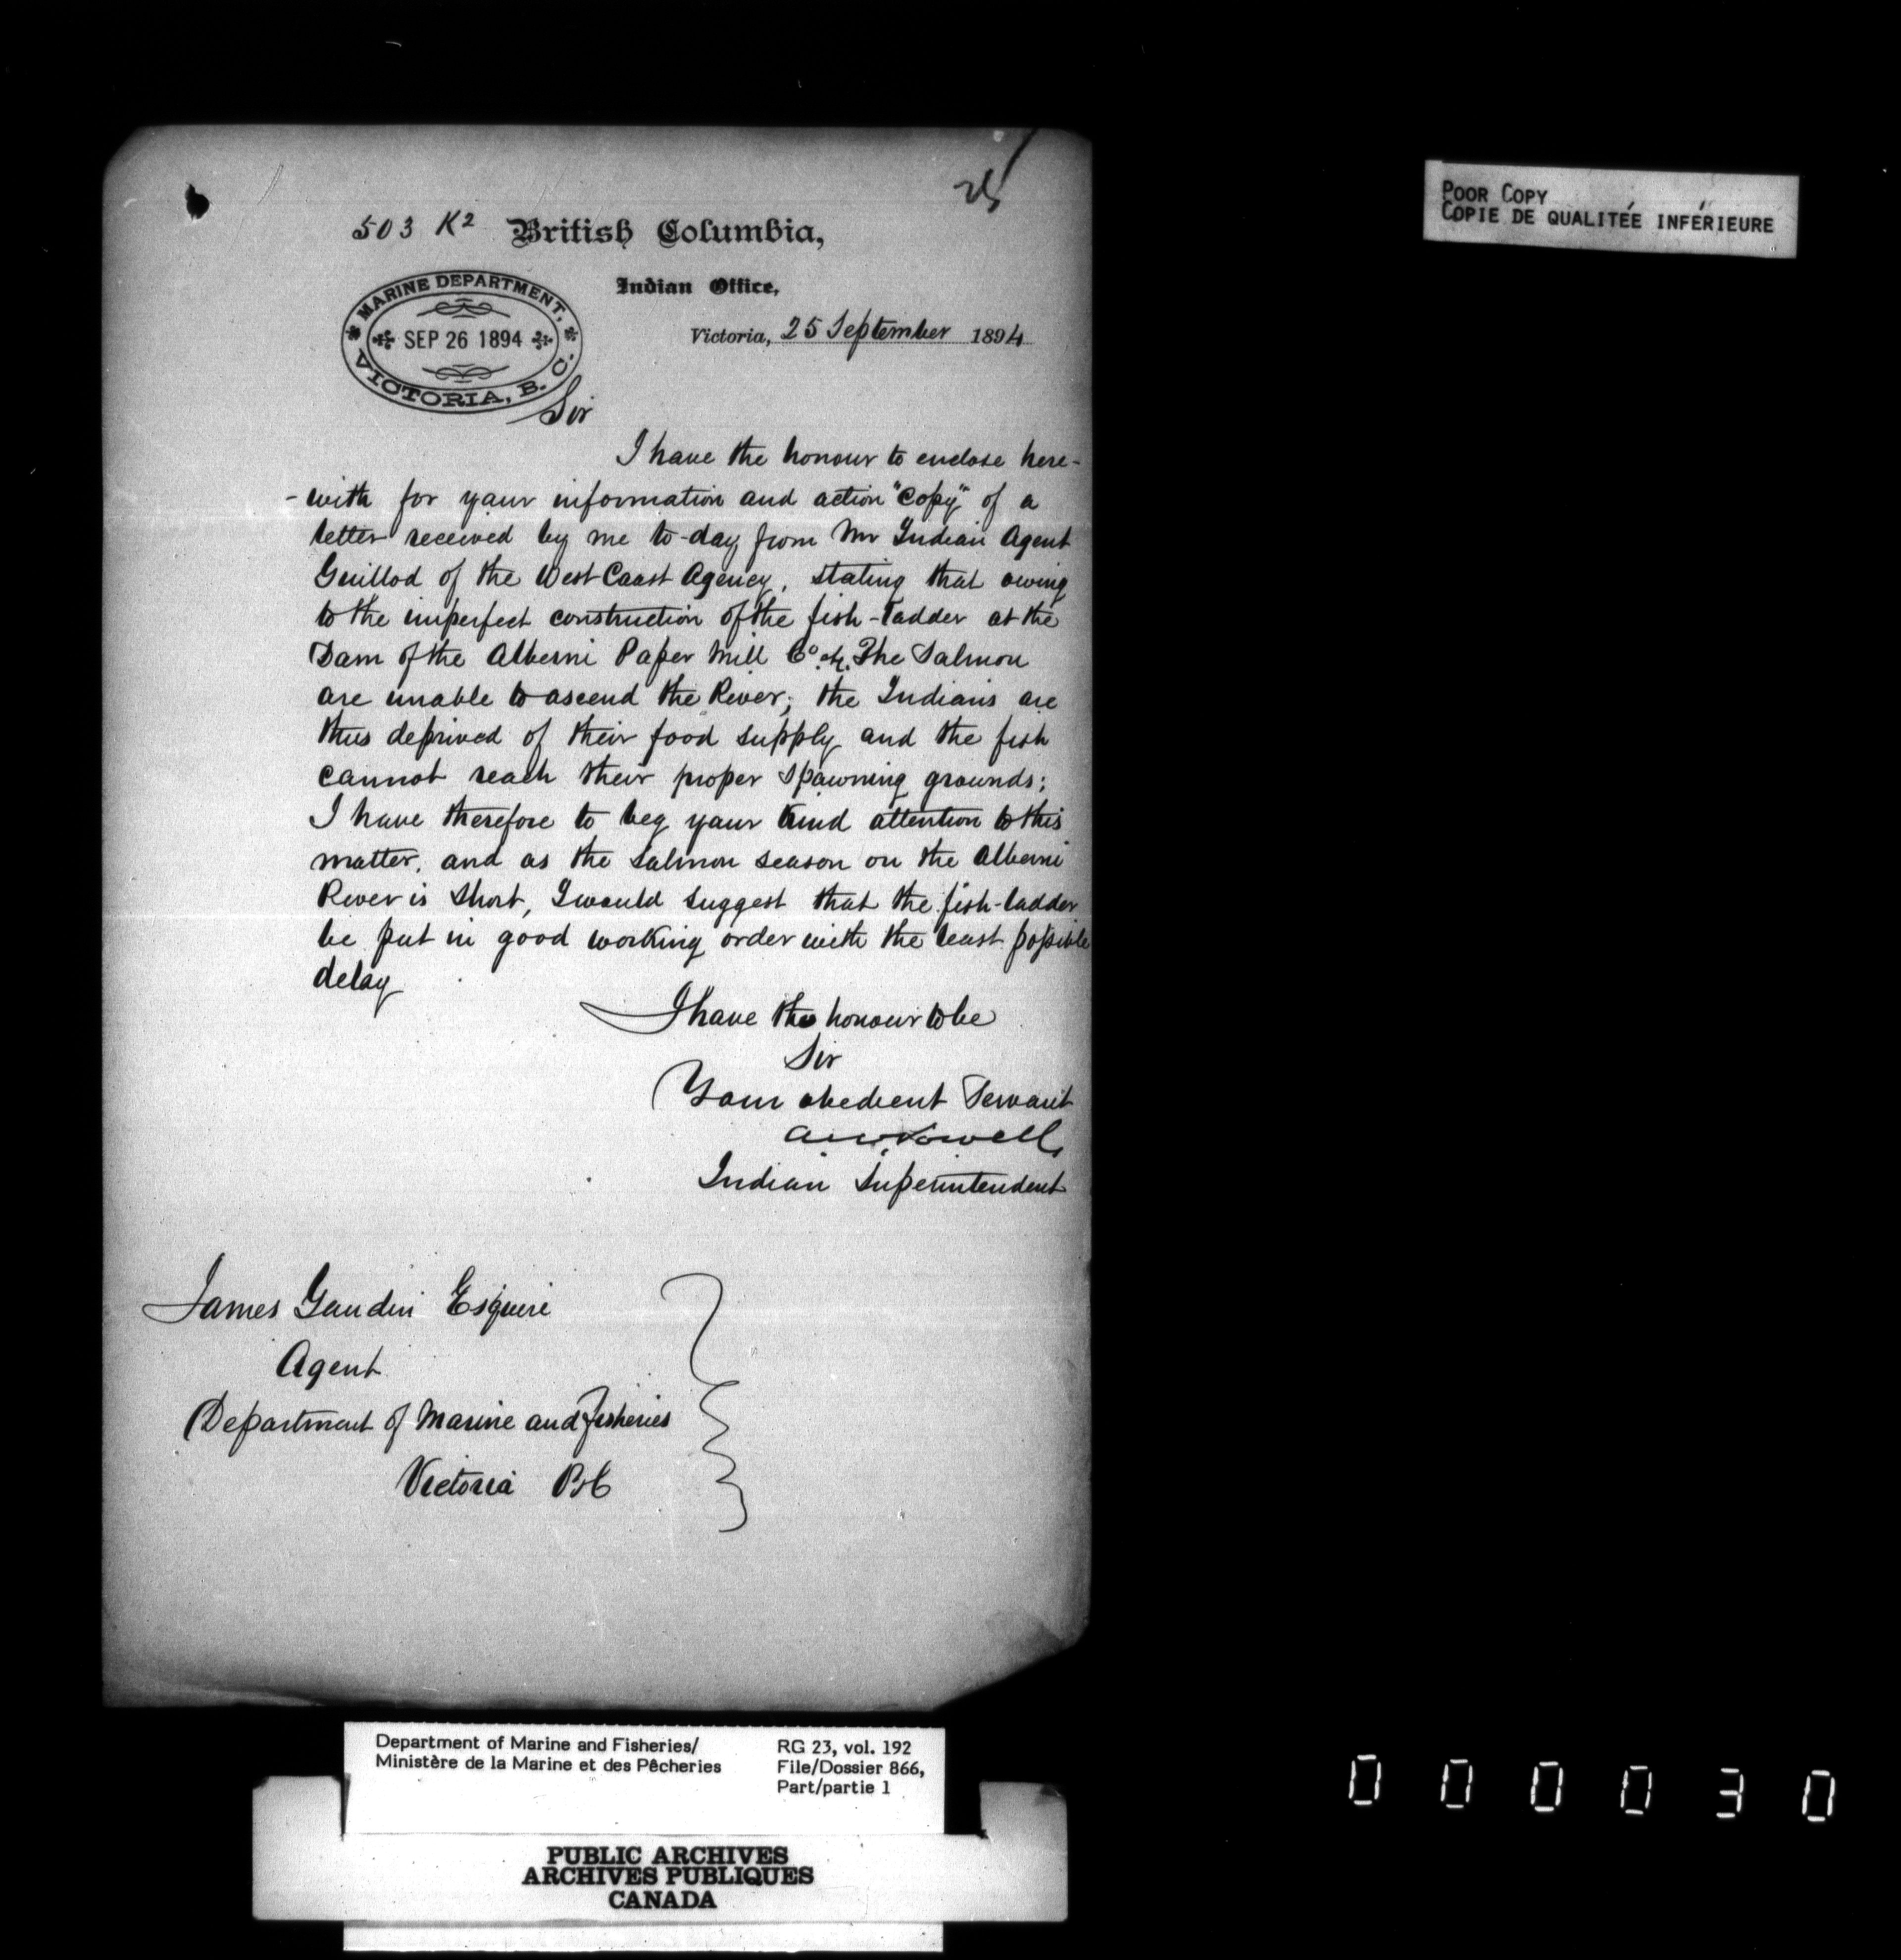 503 K2 British Columbia,
Indian Office,
Victoria, 25 September 1894
MARINE DEPARTMENT,
SEP 26 1894
VICTORIA, B.C.
Sir
I have the honour to enclose here-
-with for your information and action "Copy" of a
letter received by me to-day from Mr Indian Agent
Guillod of the West Coast Agency, stating that owing
to the imperfect construction of the fish-ladder at the
Dam of the Alberni Paper Mill Co. The Salmon
are unable to ascend the River; the Indians are
thus deprived of their food supply and the fish
cannot reach their proper spawning grounds;
I have therefore to beg your kind attention to this
matter, and as the salmon season on the Alberni
River is short, I would suggest that the fish-ladder
be put in good working order with the least possible
delay
I have the honour to be
Sir
Your obedient Servant
A W Vowell
Indian Superintendent
James Gaudin Esquire
Agent
Department of Marine and Fisheries
Victoria BC
POOR COPY
COPIE DE QUALITÉE INFÉRIEURE
Department of Marine and Fisheries/
Ministère de la Marine et des Pêcheries
RG 23, vol. 192
File/Dossier 866,
Part/partie 1
PUBLIC ARCHIVES
ARCHIVES PUBLIQUES
CANADA
000030